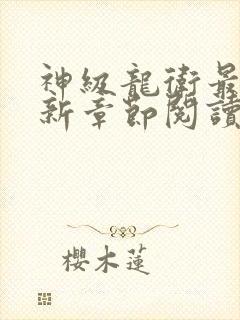 神級龍衛最
新章節閱讀
櫻木蓮